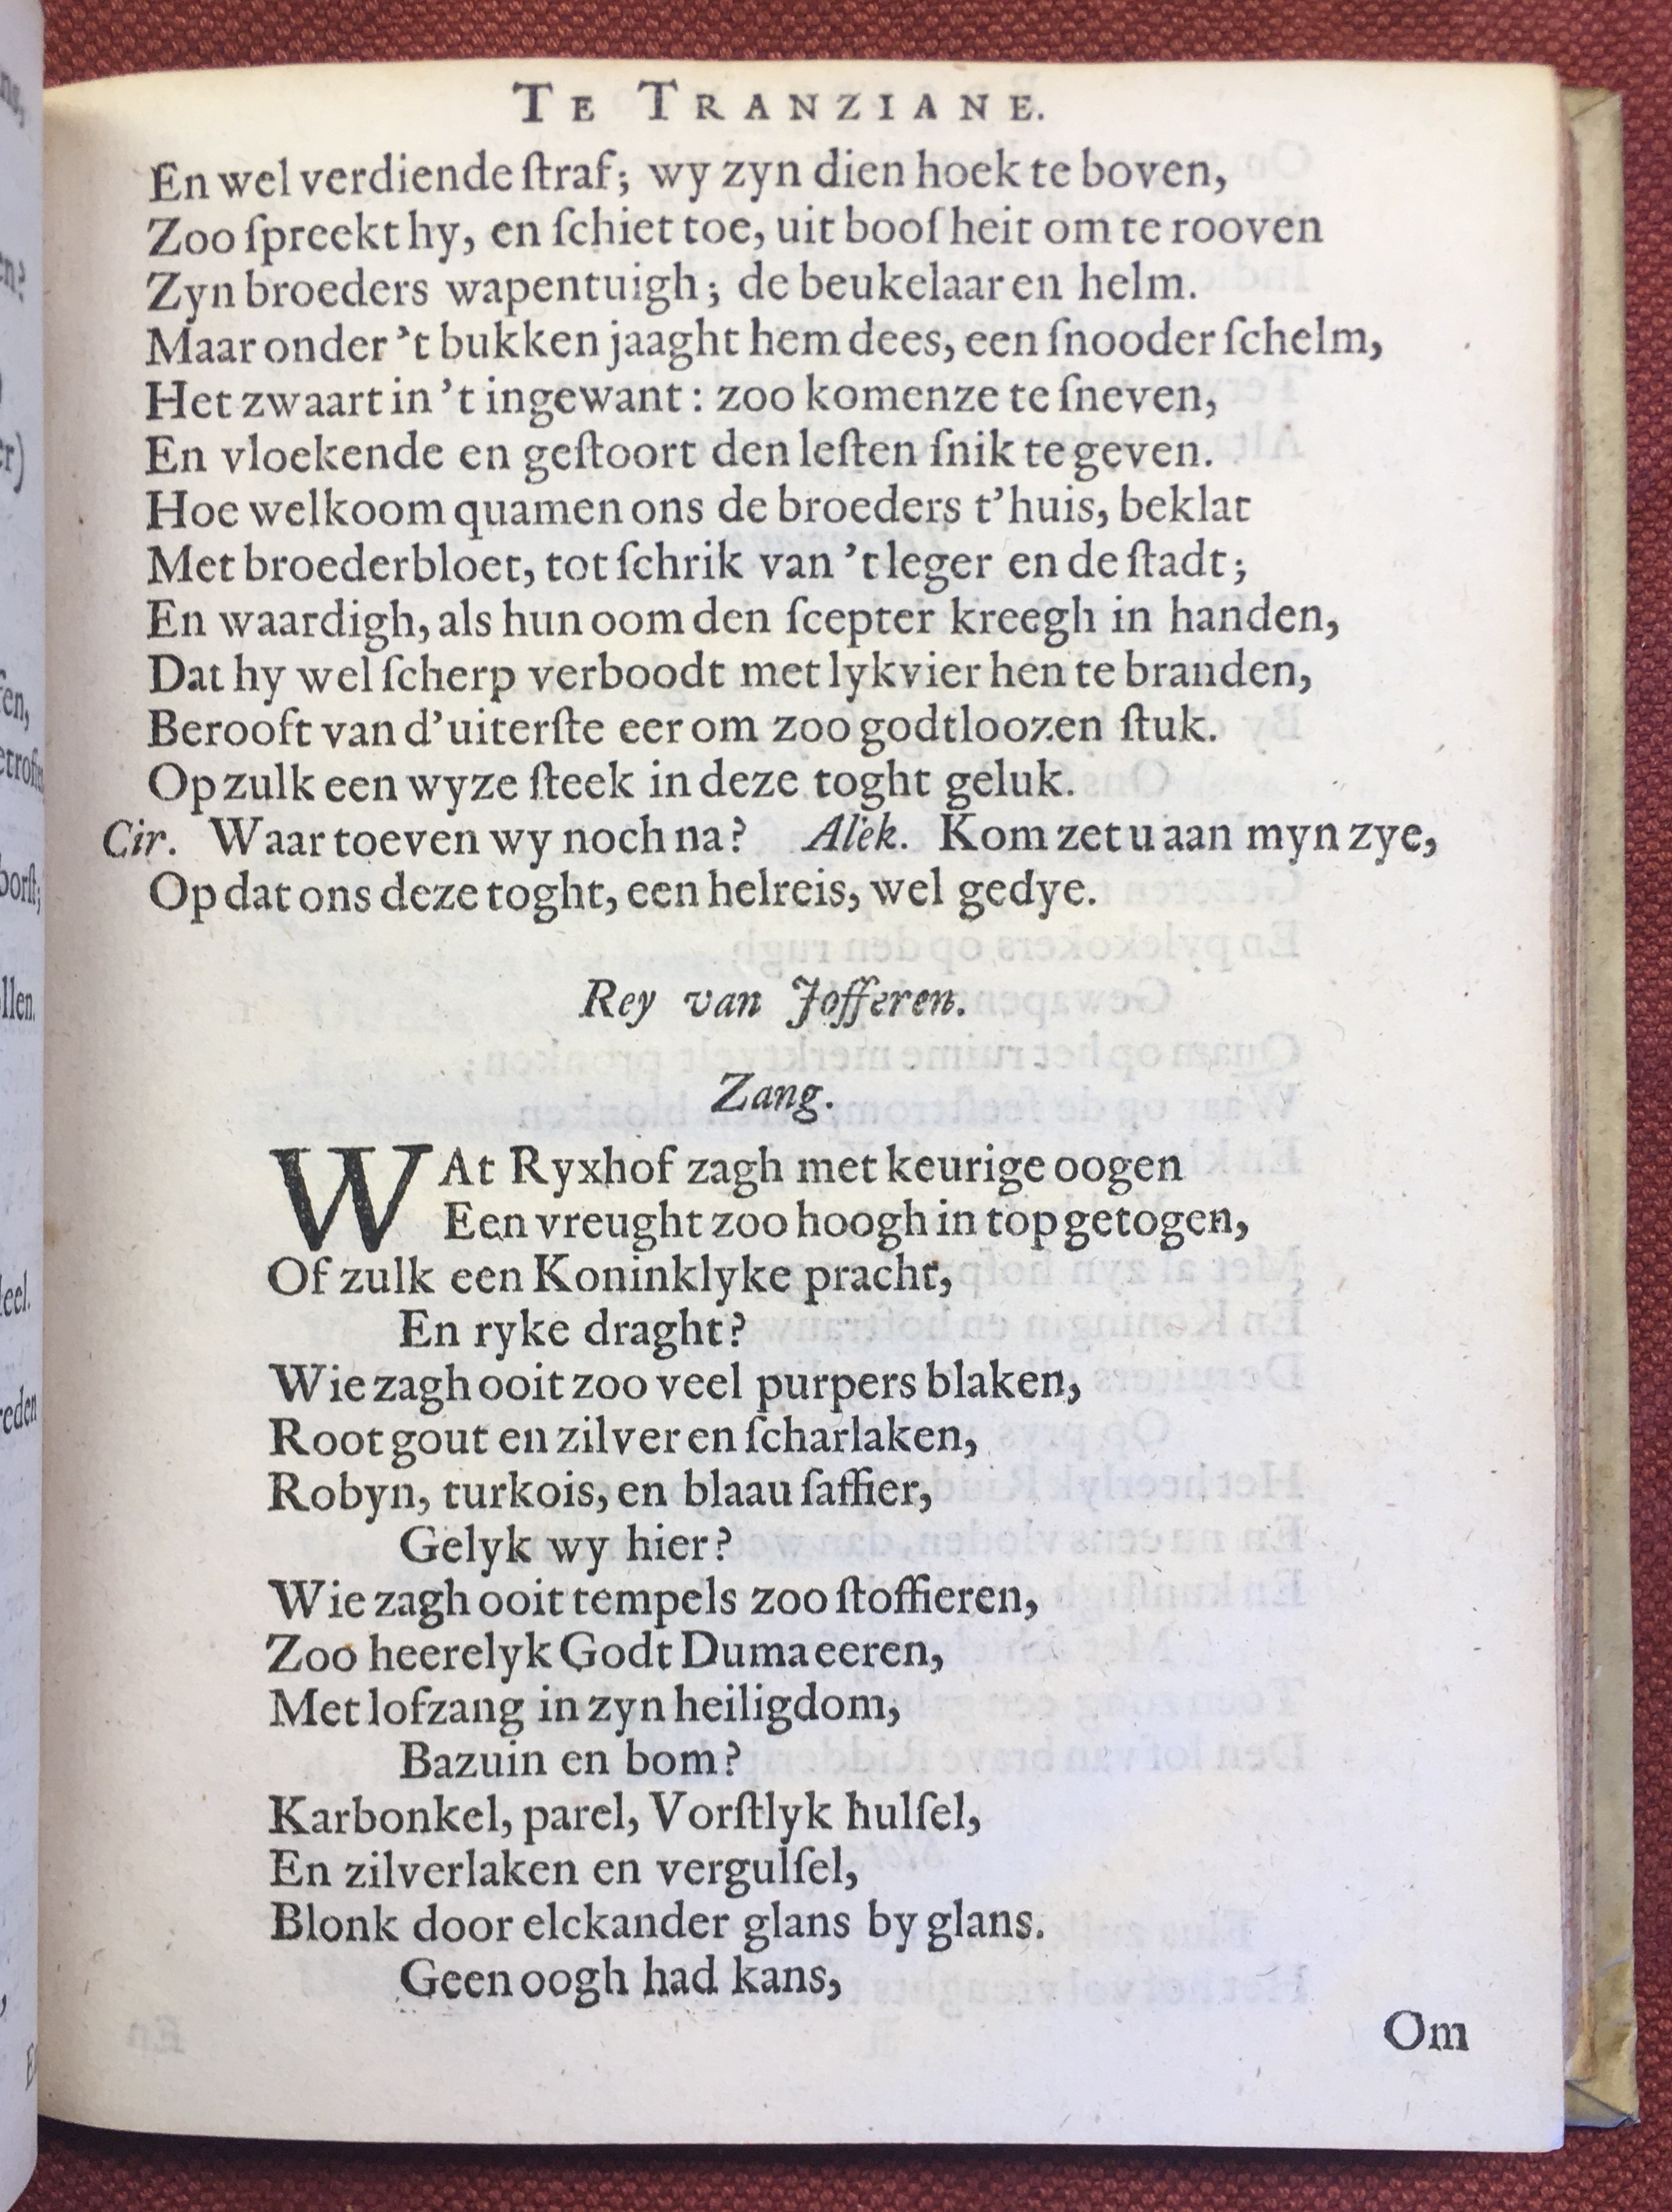 TE TRANZIANE.
En wel verdiende ſtraf; wy zyn dien hoek te boven,
Zoo ſpreekt hy, en ſchiet toe, uit booſheit om te rooven
Zyn broeders wapentuigh; de beukelaar en helm.
Maar onder 't bukken jaaght hem dees, een ſnooder ſchelm,
Het zwaart in 't ingewant: zoo komenze te ſneven,
En vloekende en geſtoort den leſten ſnik te geven.
Hoe welkoom quamen ons de broeders t'huis, beklat
Met broederbloet, tot ſchrik van 't leger en de ſtadt;
En waardigh, als hun oom den ſcepter kreegh in handen,
Dat hy wel ſcherp verboodt met lykvier hen te branden,
Berooft van d'uiterſte eer om zoo godtloozen ſtuk.
Op zulk een wyze ſteek in deze toght geluk.
Cir. Waar toeven wy noch na? Alek. Kom zet u aan myn zye,
Op dat ons deze toght, een helreis, wel gedye.
Rey van Jofferen.
Zang.
WAt Ryxhof zagh met keurige oogen
Een vreught zoo hoogh in top getogen,
Of zulk een Koninklyke pracht,
En ryke draght?
Wie zagh ooit zoo veel purpers blaken,
Root gout en zilver en ſcharlaken,
Robyn, turkois, en blaau ſaffier,
Gelyk wy hier?
Wie zagh ooit tempels zoo ſtoffieren,
Zoo heerelyk Godt Duma eeren,
Met lofzang in zyn heiligdom,
Bazuin en bom?
Karbonkel, parel, Vorſtlyk hulſel,
En zilverlaken en vergulſel,
Blonk door elckander glans by glans.
Geen oogh had kans,
Om